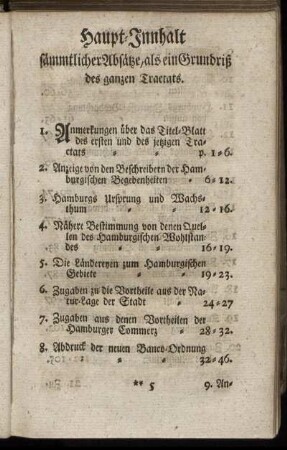 Haupt-Innhalt
sämmtlicher Absätze, als ein Grundriß
des ganzen Tractats.
1. Anmerkungen über das Titel-Blatt
des ersten und des jetzigen Tra-
ctats " p. 1-6.
2. Anzeige von den Beschreibern der Ham-
burgischen Begebenheiten " 6-12.
3. Hamburgs Ursprung und Wachs-
thum " " 12-16.
4. Nähere Bestimmung von denen Quel-
len des Hamburgischen Wohlstan-
des " " " 16-19.
5. Die Ländereyen zum Hamburgischen
Gebiete " " 19-23.
6. Zugaben zu die Vortheile aus der Na-
tur-Lage der Stadt " 24-27
7. Zugaben aus denen Vortheilen der
Hamburger Commerz " 28-32.
8. Abdruck der neuen Banco-Ordnung
" " " 32-46.
** 5 9. An-